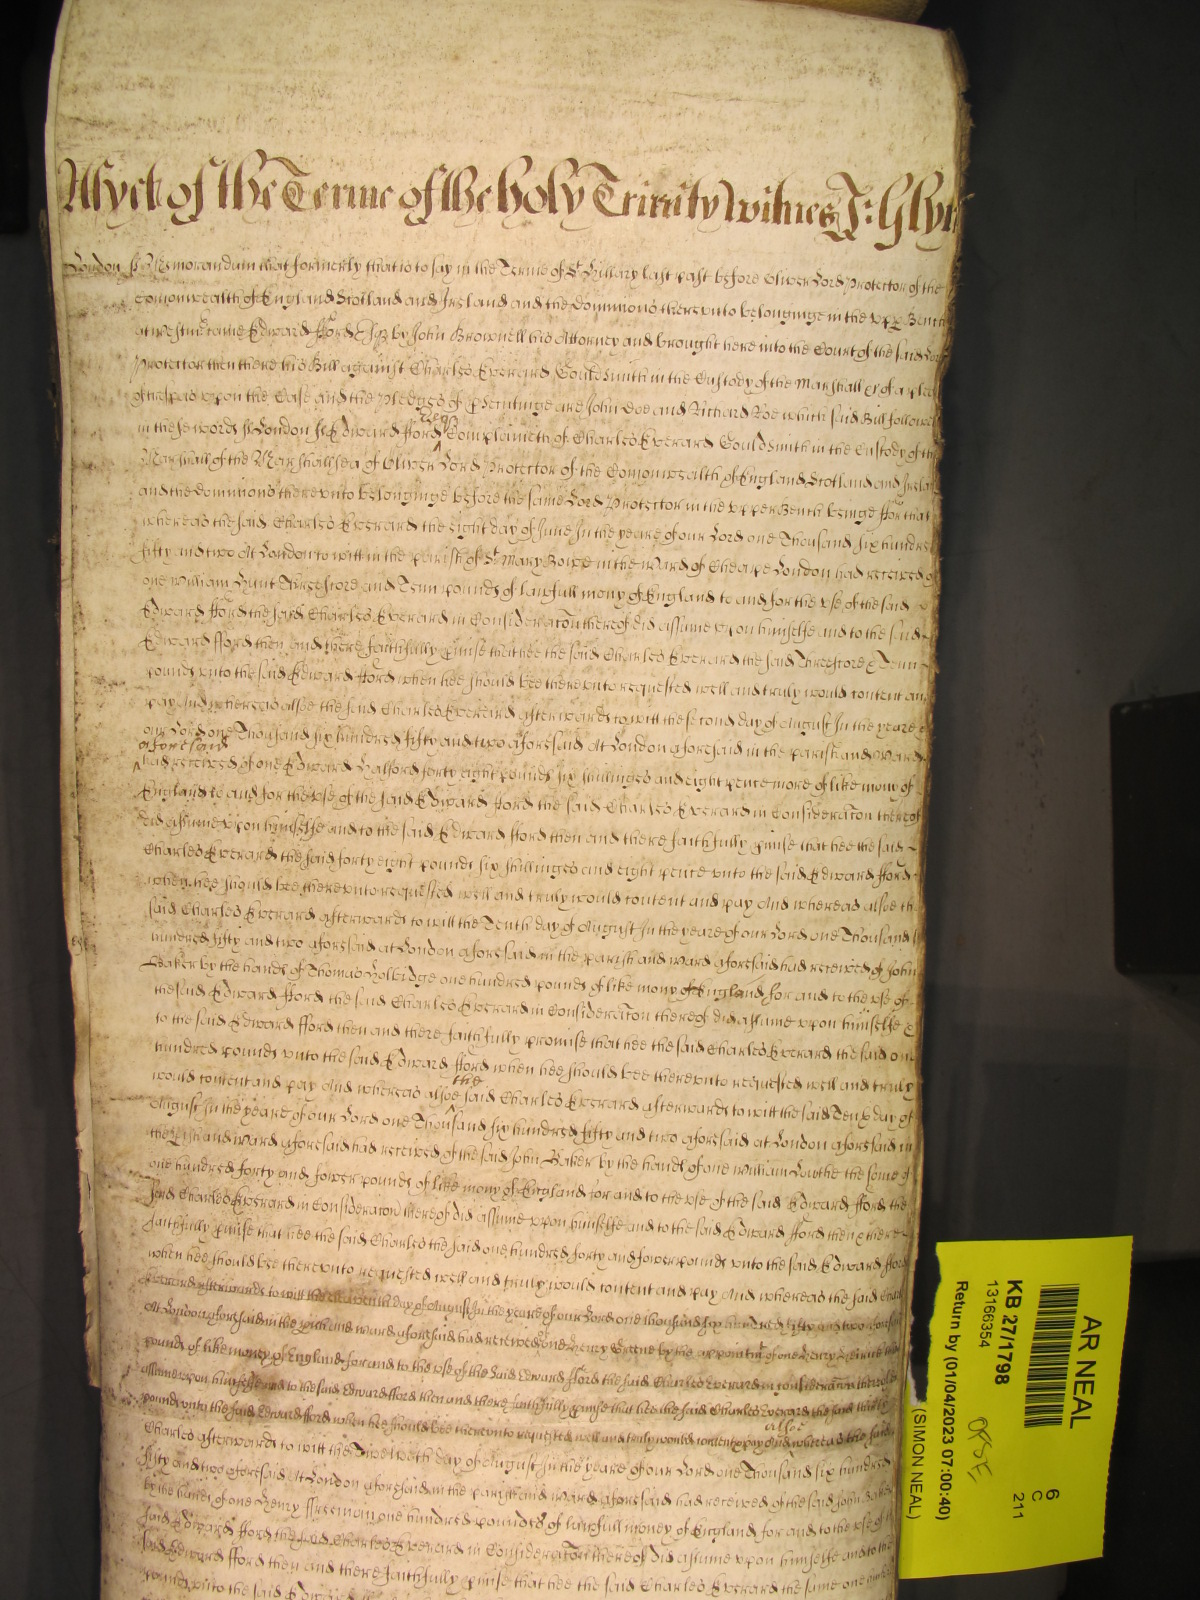 As yet of the Terme of the holy Trinity Witnes J: Glyn
London ss Memorandum that formerly that is to say in the Terme of St Hillary last past before Oliver Lord Protector of the
Comonwealth of England Scotland and Ireland and the Dominions thereunto belonginge in the upp Bench
at Westmr came Edward fford Esqr by John Brownell his Attorney and brought here into the Court of the said Lord
Protector then there his Bill against Charles Everard Gouldsmith in the Custody of the Marshall &c of a plea
of trespas upon the Case And the Pledges of p'secutinge are John Doe and Richard Roe which said Bill followes
in these words ss London ss Edward fford Esqr Complaineth of Charles Everard Gouldsmith in the Custody of the
Marshall of the Marshallsea of Oliver Lord Protector of the Comonwealth of England Scotland and Ireland
and the Dominions thereunto belonginge before the same Lord Protector in the upper Bench beinge ffor that
whereas the said Charles Everard the eight day of June In the yeare of our Lord one Thousand six hundred
fifty and two At London to witt in the parish of St Mary Bowe in the Ward of Cheape London had received of
one William Hunt Threescore and Tenn pounds of lawfull mony of England to and for the use of the said
Edward fford the said Charles Everard in Consideracon thereof did assume upon himselfe and to the said
Edward fford then and there faithfully p'mise that hee the said Charles Everard the said Threescore & Tenn
pounds unto the said Edward fford when hee should bee thereunto requested well and truly would content and
pay And whereas alsoe the said Charles Everard afterwards to witt the second day of August In the yeare of
our Lord one Thousand six hundred fifty and two aforesaid At London aforesaid in the parish and Ward
aforesaid
had received of one Edward Halford forty eight pounds six shillinges and eight pence more of like mony of
England to and for the use of the said Edward fford the said Charles Everard in Consideracon thereof
did assume upon himselfe and to the said Edward fford then and there faithfully p'mise that hee the said
Charles Everard the said forty eight pounds six shillinges and eight pence unto the said Edward fford
when hee should bee thereunto requested well and truly would content and pay And whereas alsoe the
said Charles Everard afterwards to witt the Tenth day of August In the yeare of our Lord one Thousand
hundred fifty and two aforesaid at London aforesaid in the parish and ward aforesaid had received of John
Baker by the hands of Thomas Holbridge one hundred pounds of like mony of England for and to the use of
the said Edward fford the said Charles Everard in Consideracon thereof did assume upon himselfe &
to the said Edward fford then and there faithfully promise that hee the said Charles Everard the said one
hundred pounds unto the said Edward fford when hee should bee thereunto requested well and truly
would content and pay And whereas alsoe the said Charles Everard afterwards to witt the said Tenth day of
August In the yeare of our Lord one Thousand six hundred fifty and two aforesaid at London aforesaid in
the p'ish and ward aforesaid had received of the said John Baker by the hands of one William the some of
one hundred forty and fower pounds of like mony of England for and to the use of the said Edward fford the
said Charles Everard in Consideracon thereof did assume upon himselfe and to the said Edward fford then & there
faithfully p'mise that hee the said Charles the said one hundred forty and fower pounds unto the said Edward fford
when hee should bee thereunto requested well and truly would content and pay And whereas the said Charles
Everard afterwards to witt the eleaventh day of August In the yeare of our Lord one thousand six hundred fifty and two aforesaid
At London aforesaid in the p'ish and ward aforesaid had received of one Henry Greene by the appointmt of one Henry
pounds of like money of England for and to the use of the said Edward fford the said Charles Everard in consideracon thereof
assume upon himselfe and to the said Edward fford then and there faithfully p'mise that hee the said Charles Everard the said thirty
pounds unto the said Edward fford when hee should bee thereunto requested well and truly would content & pay And whereas alsoe the said
Charles afterwards to witt the Twelveth day of August In the yeare of our Lord one Thousand six hundred
fifty and two aforesaid At London aforesaid in the parish and ward aforesaid had received of the said John Baker
by the hands of one Henry ffreeman one hundred pounds of lawfull money of England for and to the use of the
said Edward fford the said Charles Everard in Consideracon thereof did assume upon himselfe and to the
said Edward fford then and there faithfully p'mise that hee the said Charles Everard the same one
pounds unto the said Edward
AR NEAL
KB 27/1798
13166354
Return by (01/04/2023 07:00:40)
(SIMON NEAL)
6
C
211